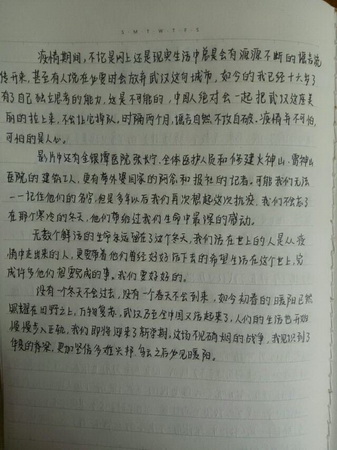 S M T W T F S
疫情期间，不论是网上还是现实生活中总是会有源源不断的谣言流
传开来，甚至有人说在必要时会放弃武汉这句城市，如今的我已经十六岁了
有了自己独立思考的能力，这是不可能的，中国人绝对会一起把武汉这座美
丽的拉上来，不会让它掉队，时隔两个月，谣言自然不攻自破，疫情并不可怕，
可怕的是人心。
影片中还有金银潭医院张长，全体医护人员和修建火神山、雷神山
医院的建筑工人，更有奉先要回家的阿念和报社的记者。可能我们无法
一一记住他们的名字，但是多年以后我们再次说起这次抗疫，我们不会忘了
在那个寒冷的冬天，他们曾给过我们生命中最深的感动。
无数个鲜活的生命永远留在了这个冬天，我们活在世上的人是从疫
情中走出来的人，更要带着他们曾经好好活下去的希望生活在这个世上，完
成许多他们想要完成的事，我们要好好的。
没有一个冬天不会过去，没有一个春天不会到来，如今初春的暖阳已然
照耀在田野之上，万物复苏，武汉乃至全中国又活起来了，人们的生活也开始
慢慢步入正轨，我们即将迎来了新学期，这场不见硝烟的战争，我见识到了
华夏的脊梁，更加坚信多难兴邦，寒冬之后必见暖阳。